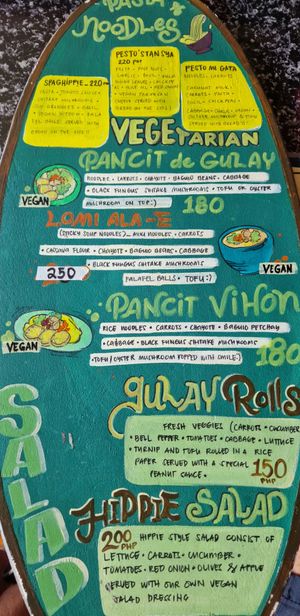 PASTA &
NOODLES
PESTO STANSYA
220 PHP
SPAGHIPPIE - 220 PHP
PESTO MI GATA
VEGETARIAN
PANCIT de GULAY
NOODLES • CARROTS • CHAYOTE • BAGUIO BEANS • CABBAGE
• BLACK FUNGUS SHITAKE MUSHROOMS • TOFU OR OYSTER
MUSHROOM ON TOP :)
180
VEGAN
LOMI ALA-E
(STICKY SOUP NOODLES) ... MIKI NOODLES • CARROTS
• CASSAVA FLOUR • CHAYOTE • BAGUIO BEANS • CABBAGE
• BLACK FUNGUS SHITAKE MUSHROOMS
250
FALAFEL BALLS • TOFU :)
VEGAN
PANCIT VIHON
RICE NOODLES • CARROTS • CHAYOTE • BAGUIO PETCHAY
• CABBAGE • BLACK FUNGUS SHITAKE MUSHROOMS
VEGAN
• TOFU/OYSTER MUSHROOM TOPPED WITH SMILE :)
180
GULAY Rolls
FRESH VEGGIES (CARROT • CUCUMBER
• BELL PEPPER • TOMATOES • CABBAGE • LUTTICE
TURNIP AND TOFU ROLLED IN A RICE
PAPER SERVED WITH A SPECIAL
PEANUT SAUCE •
150
PHP
SALAD
HIPPIE SALAD
200
PHP
HIPPIE STYLE SALAD CONSIST OF
LETTICE • CARROTS • CUCUMBER •
TOMATOES • RED ONION • OLIVES & APPLE
SERVED WITH OUR OWN VEGAN
SALAD DRESSING